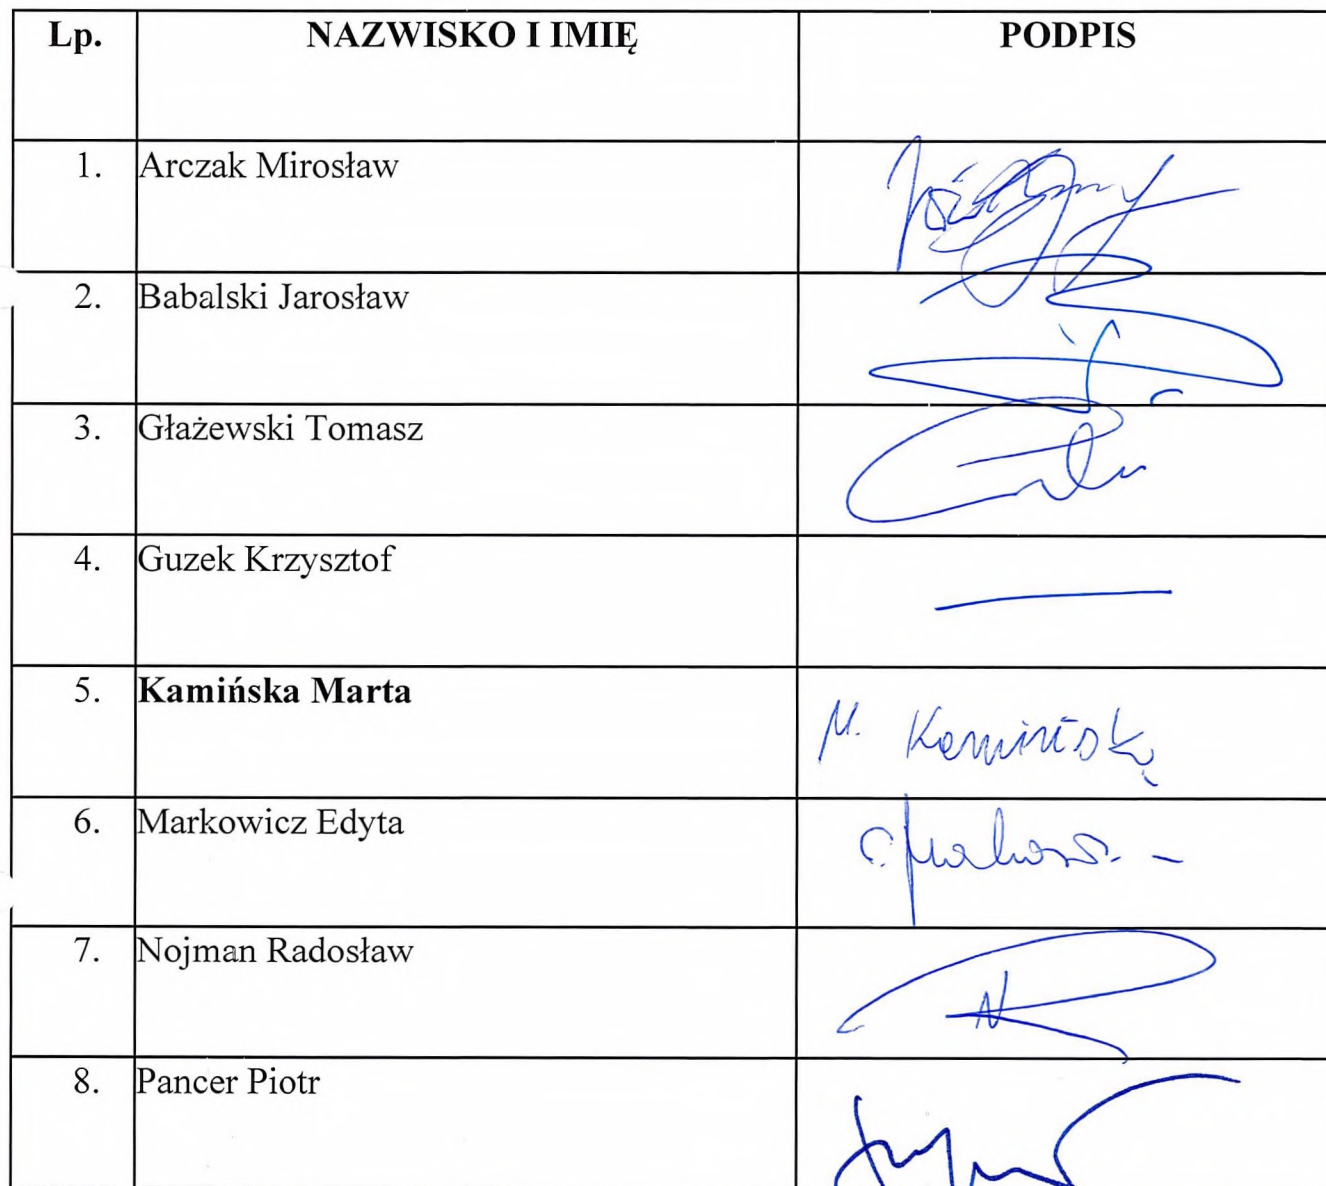 Lp. NAZWISKO I IMIĘ PODPIS
1. Arczak Mirosław
2. Babalski Jarosław
3. Głażewski Tomasz
4. Guzek Krzysztof
5. Kamińska Marta M. Kamińska
6. Markowicz Edyta
7. Nojman Radosław
8. Pancer Piotr